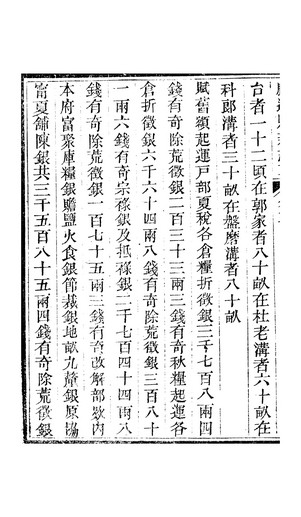 台者一十二頃在郭家者八十畝在杜老溝者六十畝在
科郎溝者三十畝在盤磨溝者八十畝
賦舊額起運戸部夏稅各倉糧折徵銀三千七百八兩四
錢有奇除荒徵銀二百三十三兩四錢有奇秋糧起運各
倉折徵銀六千六十四兩八錢有奇除荒徵銀三百八十
一兩六錢有奇宗祿銀及抵祿銀二千七百四十四兩一
錢有奇除荒徵銀一百七十五兩三錢有奇改解部欵內
本府富聚庫糧銀贍鹽火食銀節裁銀地畝九釐銀原協
甯夏舖陳銀共三千五百八十五兩四錢有奇除荒徵銀